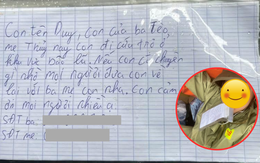 Con tên Duy, con của ba Tèo,
mẹ Thủy nay con đi cứu trợ ở
khu vực Đắc Lắc. Nếu con có chuyện
gì nhờ mọi người đưa con về
lại với ba mẹ con nha, con cảm
ơn mọi người nhiều ạ.
SĐT ba
SĐT mẹ